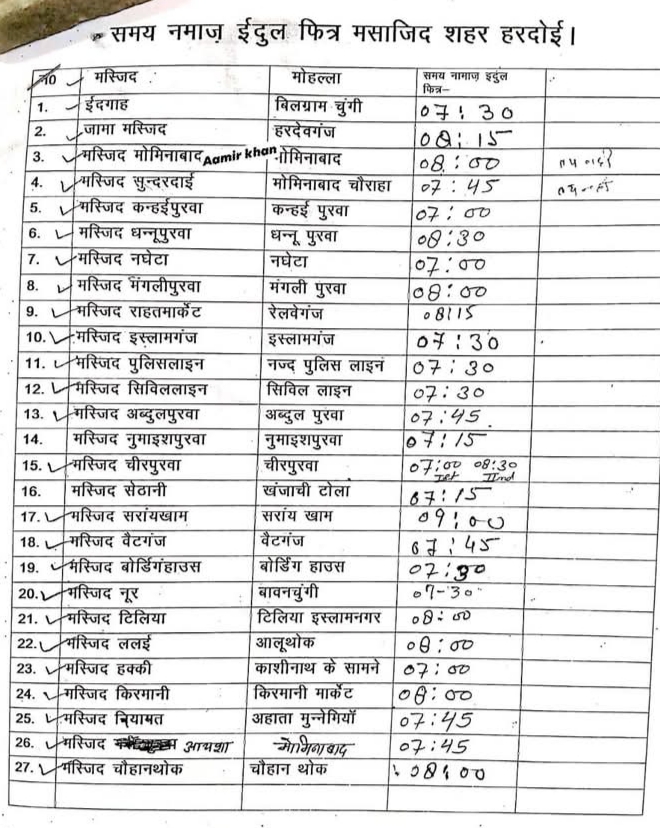 समय नमाज़ ईदुल फित्र मसाजिद शहर हरदोई।
न0 मस्जिद मोहल्ला समय नामाज़ इदुल
फित्र–
1. ईदगाह बिलग्राम चुंगी 07:30
2. जामा मस्जिद हरदेवगंज 08:15
3. मस्जिद मोमिनाबाद Aamir khan मोमिनाबाद 08:00
4. मस्जिद सुन्दरदाई मोमिनाबाद चौराहा 07:45
5. मस्जिद कन्हईपुरवा कन्हई पुरवा 07:00
6. मस्जिद धन्नूपुरवा धन्नू पुरवा 08:30
7. मस्जिद नघेटा नघेटा 07:00
8. मस्जिद मंगलीपुरवा मंगली पुरवा 08:00
9. मस्जिद राहतमार्केट रेलवेगंज 08:15
10. मस्जिद इस्लामगंज इस्लामगंज 07:30
11. मस्जिद पुलिसलाइन नज्द पुलिस लाइन 07:30
12. मस्जिद सिविललाइन सिविल लाइन 07:30
13. मस्जिद अब्दुलपुरवा अब्दुल पुरवा 07:45
14. मस्जिद नुमाइशपुरवा नुमाइशपुरवा 07:15
15. मस्जिद चीरपुरवा चीरपुरवा 07:00 08:30
Ist IInd
16. मस्जिद सेठानी खंजाची टोला 07:15
17. मस्जिद सरांयखाम सरांय खाम 09:00
18. मस्जिद वैटगंज वैटगंज 07:45
19. मस्जिद बोर्डिगंहाउस बोर्डिंग हाउस 07:30
20. मस्जिद नूर बावनचुंगी 07-30
21. मस्जिद टिलिया टिलिया इस्लामनगर 08:00
22. मस्जिद ललई आलूथोक 08:00
23. मस्जिद हक्की काशीनाथ के सामने 07:00
24. मस्जिद किरमानी किरमानी मार्केट 08:00
25. मस्जिद नियामत अहाता मुन्नेमियाँ 07:45
26. मस्जिद आयशा मोमिनाबाद 07:45
27. मस्जिद चौहानथोक चौहान थोक 08:00